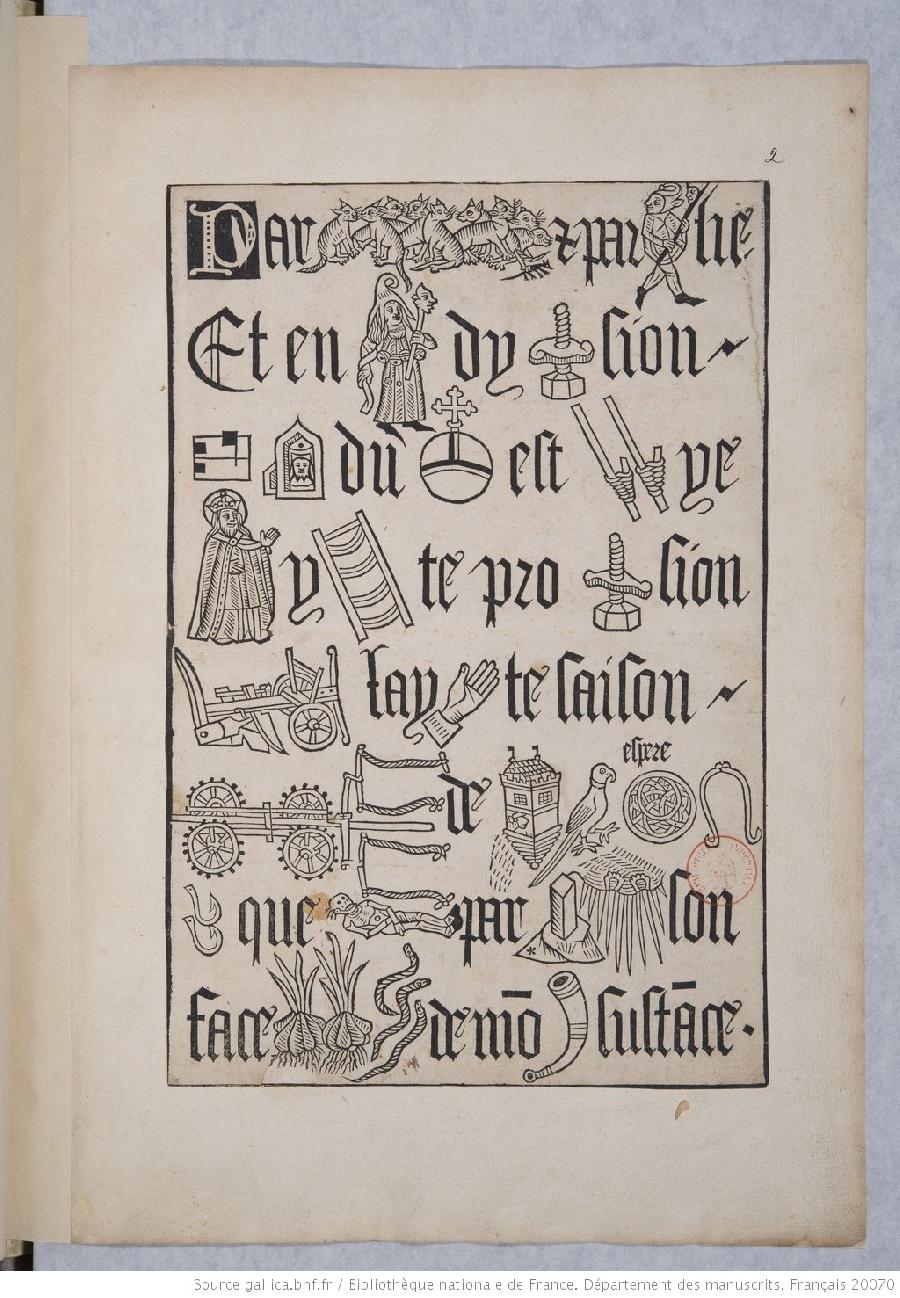 2
Par ⁊ par lie
Et en dy sion
dū est ye
y te pro sion
lay te saison
espere
de
que par son
face de mō sustāce.
Source gallica.bnf.fr / Bibliothèque nationale de France. Département des manuscrits. Français 20070